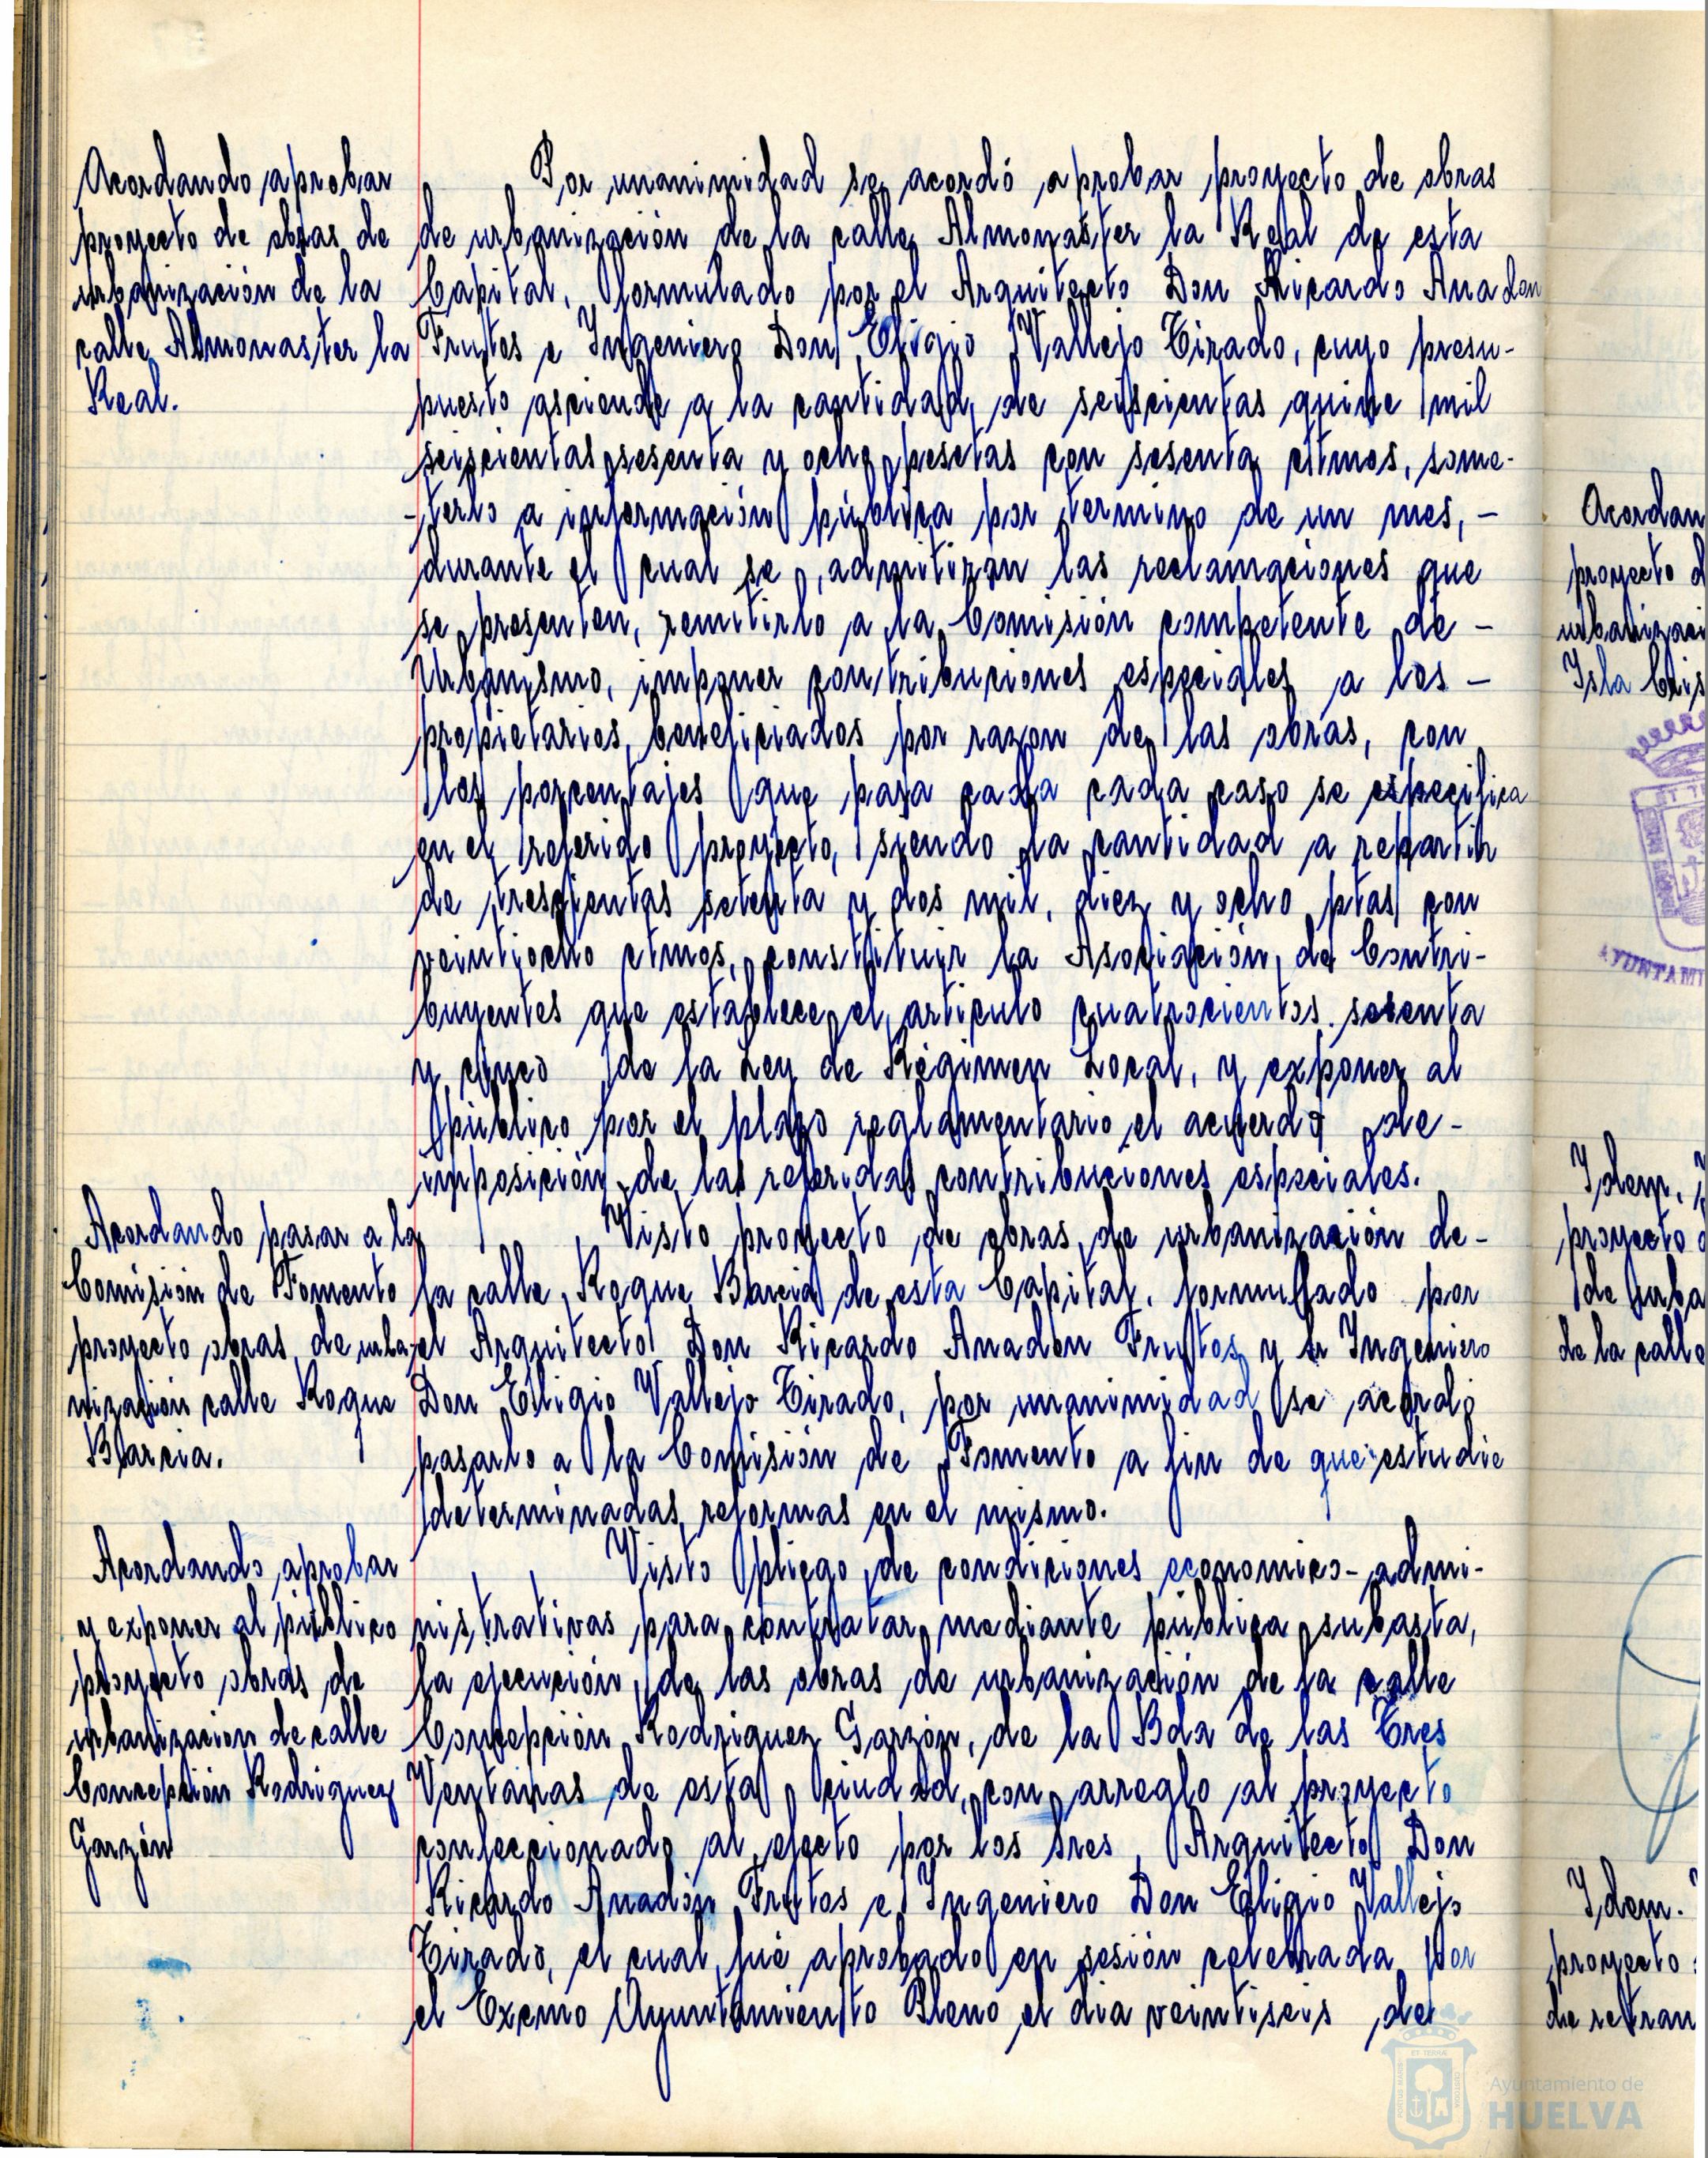 Acordando aprobar
proyecto de obras de
urbanización de la
calle Almonaster la
Real.
Por unanimidad se acordó aprobar proyecto de obras
de urbanización de la calle Almonaster la Real de esta
Capital, formulado por el Arquitecto Don Ricardo Anadon
Frutos e Ingeniero Don Eligio Vallejo Tirado, cuyo presu-
puesto asciende a la cantidad de seiscientas quince mil
seiscientas sesenta y ocho pesetas con sesenta ctmos, some-
-terlo a información pública por termino de un mes, -
durante el cual se admitiran las reclamaciones que
se presenten, remitirlo a la Comisión competente de -
Urbanismo, imponer contribuciones especiales a los -
propietarios beneficiados por razon de las obras, con
los porcentajes que para cada cada caso se especifica
en el referido proyecto, siendo la cantidad a repartir
de trescientas setenta y dos mil, diez y ocho ptas con
veintiocho ctmos, constituir la Asociación de Contri-
buyentes que establece el articulo cuatrocientos sesenta
y cinco de la Ley de Régimen Local, y exponer al
público por el plazo reglamentario el acuerdo de -
imposición de las referidas contribuciones especiales.
Acordando pasar a la
Comisión de Fomento
proyecto obras de urba-
nización calle Roque
Barcia.
Visto proyecto de obras de urbanización de -
la calle Roque Barcia de esta Capital, formulado por
el Arquitecto Don Ricardo Anadón Frutos y el Ingeniero
Don Eligio Vallejo Tirado, por unanimidad se acordó
pasarlo a la Comisión de Fomento a fin de que estudie
determinadas reformas en el mismo.
Acordando aprobar
y exponer al público
proyecto obras de
urbanizacion de calle
Concepción Rodriguez
Garzón
Visto pliego de condiciones economico-admi-
nistrativas para contratar mediante pública subasta,
la ejecución de las obras de urbanización de la calle
Concepción Rodriguez Garzón, de la Bda de las Tres
Ventanas de esta ciudad, con arreglo al proyecto
confeccionado al efecto por los Sres Arquitecto Don
Ricardo Anadón Frutos e Ingeniero Don Eligio Vallejo
Tirado, el cual fué aprobado en sesión celebrada por
el Excmo Ayuntamiento Pleno el dia veintiseis de
Acordan
proyecto d
urbanizaci
Isla Cris
Idem.
proyecto
de urba
de la calle
Idem.
proyecto
de retran
Ayuntamiento de
HUELVA